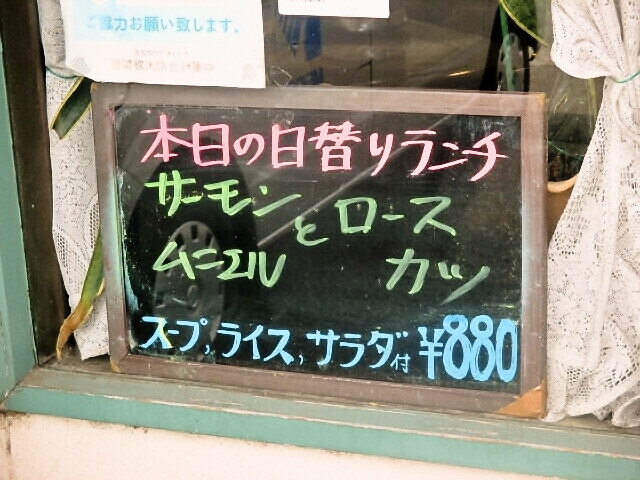 ご協力お願い致します。
本日の日替りランチ
サーモン と ロース
ムニエル カツ
スープ, ライス, サラダ付 ¥880